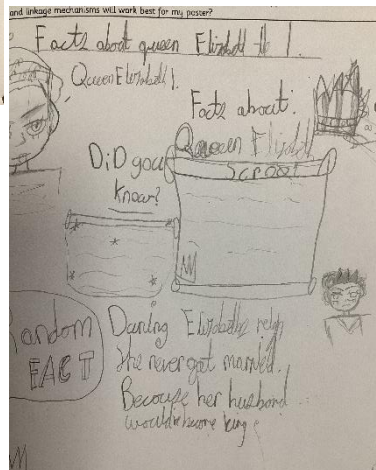 and linkage mechanisms will work best for my poster?
Facts about queen Elizabeth the 1.
Queen Elizabeth 1.
Facts about:
Queen Elizabeth
Scrool
DiD you
know?
andom
FACT
During Elizabeths reign
She never got married.
Because her husband
would become king